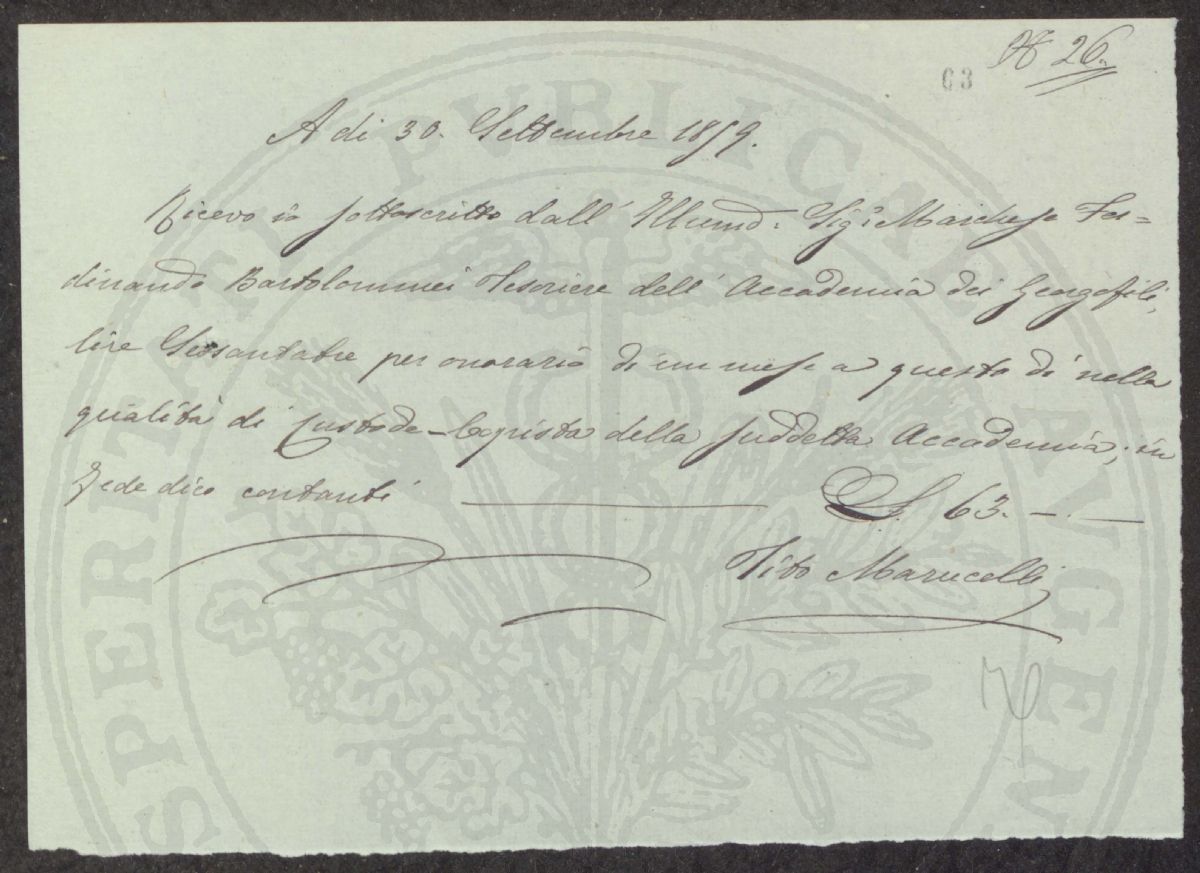 N° 26.
63
A di 30. Settembre 1859.
Ricevo io sottoscritto dall' Illumo: Sigr. Marchese Fer=
dinando Bartolommei Tesoriere dell' Accademia dei Georgofili,
lire Sessantatre per onorario di un mese a questo dì nella
qualità di Custode-Copista della suddetta Accademia, in
fede dico contanti £. 63. - -
Tito Marucelli
PROSPERITATI PVBLICAE AVGENDAE